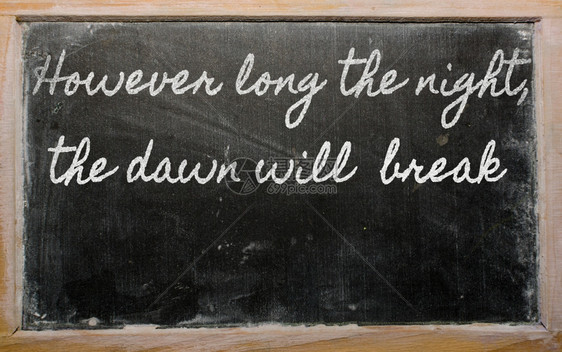 However long the night,
the dawn will break
699pic.com